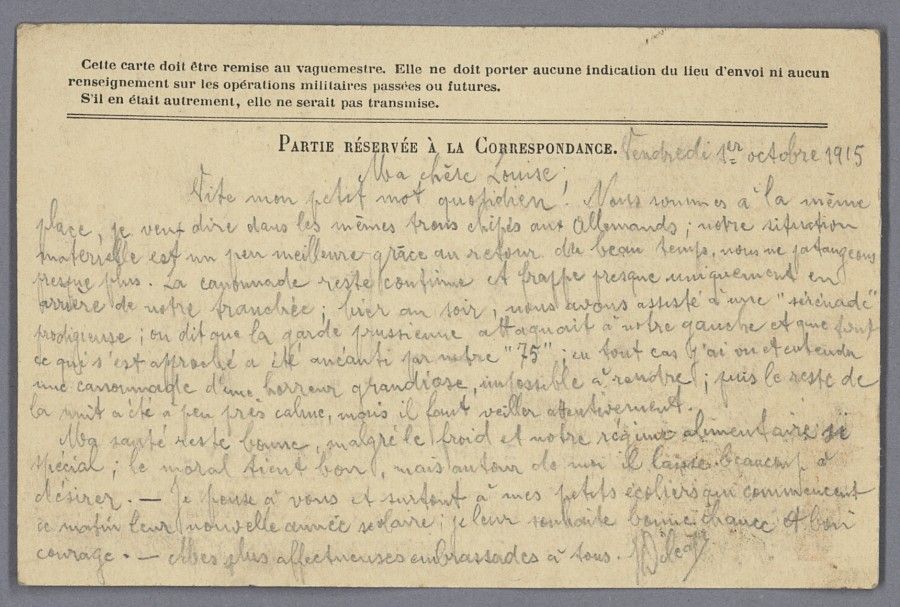 Cette carte doit être remise au vaguemestre. Elle ne doit porter aucune indication du lieu d'envoi ni aucun
renseignement sur les opérations militaires passées ou futures.
S'il en était autrement, elle ne serait pas transmise.
PARTIE RÉSERVÉE À LA CORRESPONDANCE. Vendredi 1er octobre 1915
Ma chère Louise,
Vite mon petit mot quotidien. Nous sommes à la même
place, je veux dire dans les mêmes trous chipés aux Allemands ; notre situation
matérielle est un peu meilleure grâce au retour du beau temps, nous ne pataugeons
presque plus. La canonnade reste continue et frappe presque uniquement en
arrière de notre tranchée ; hier au soir, nous avons assisté à une "sérénade"
prodigieuse ; on dit que la garde prussienne attaquait à notre gauche et que tout
ce qui s'est aproché a été anéanti par notre "75" ; en tout cas j'ai vu et entendu
une canonnade d'une horreur grandiose, impossible à rendre ; puis le reste de
la nuit a été à peu près calme, mais il faut veiller attentivement.
Ma santé reste bonne, malgré le froid et notre régime alimentaire si
spécial ; le moral tient bon, mais autour de moi il laisse beaucoup à
désirer. — Je pense à vous et surtout à mes petits écoliers qui commencent
ce matin leur nouvelle année scolaire ; je leur souhaite bonne chance et bon
courage. — Mes plus affectueuses embrassades à tous.